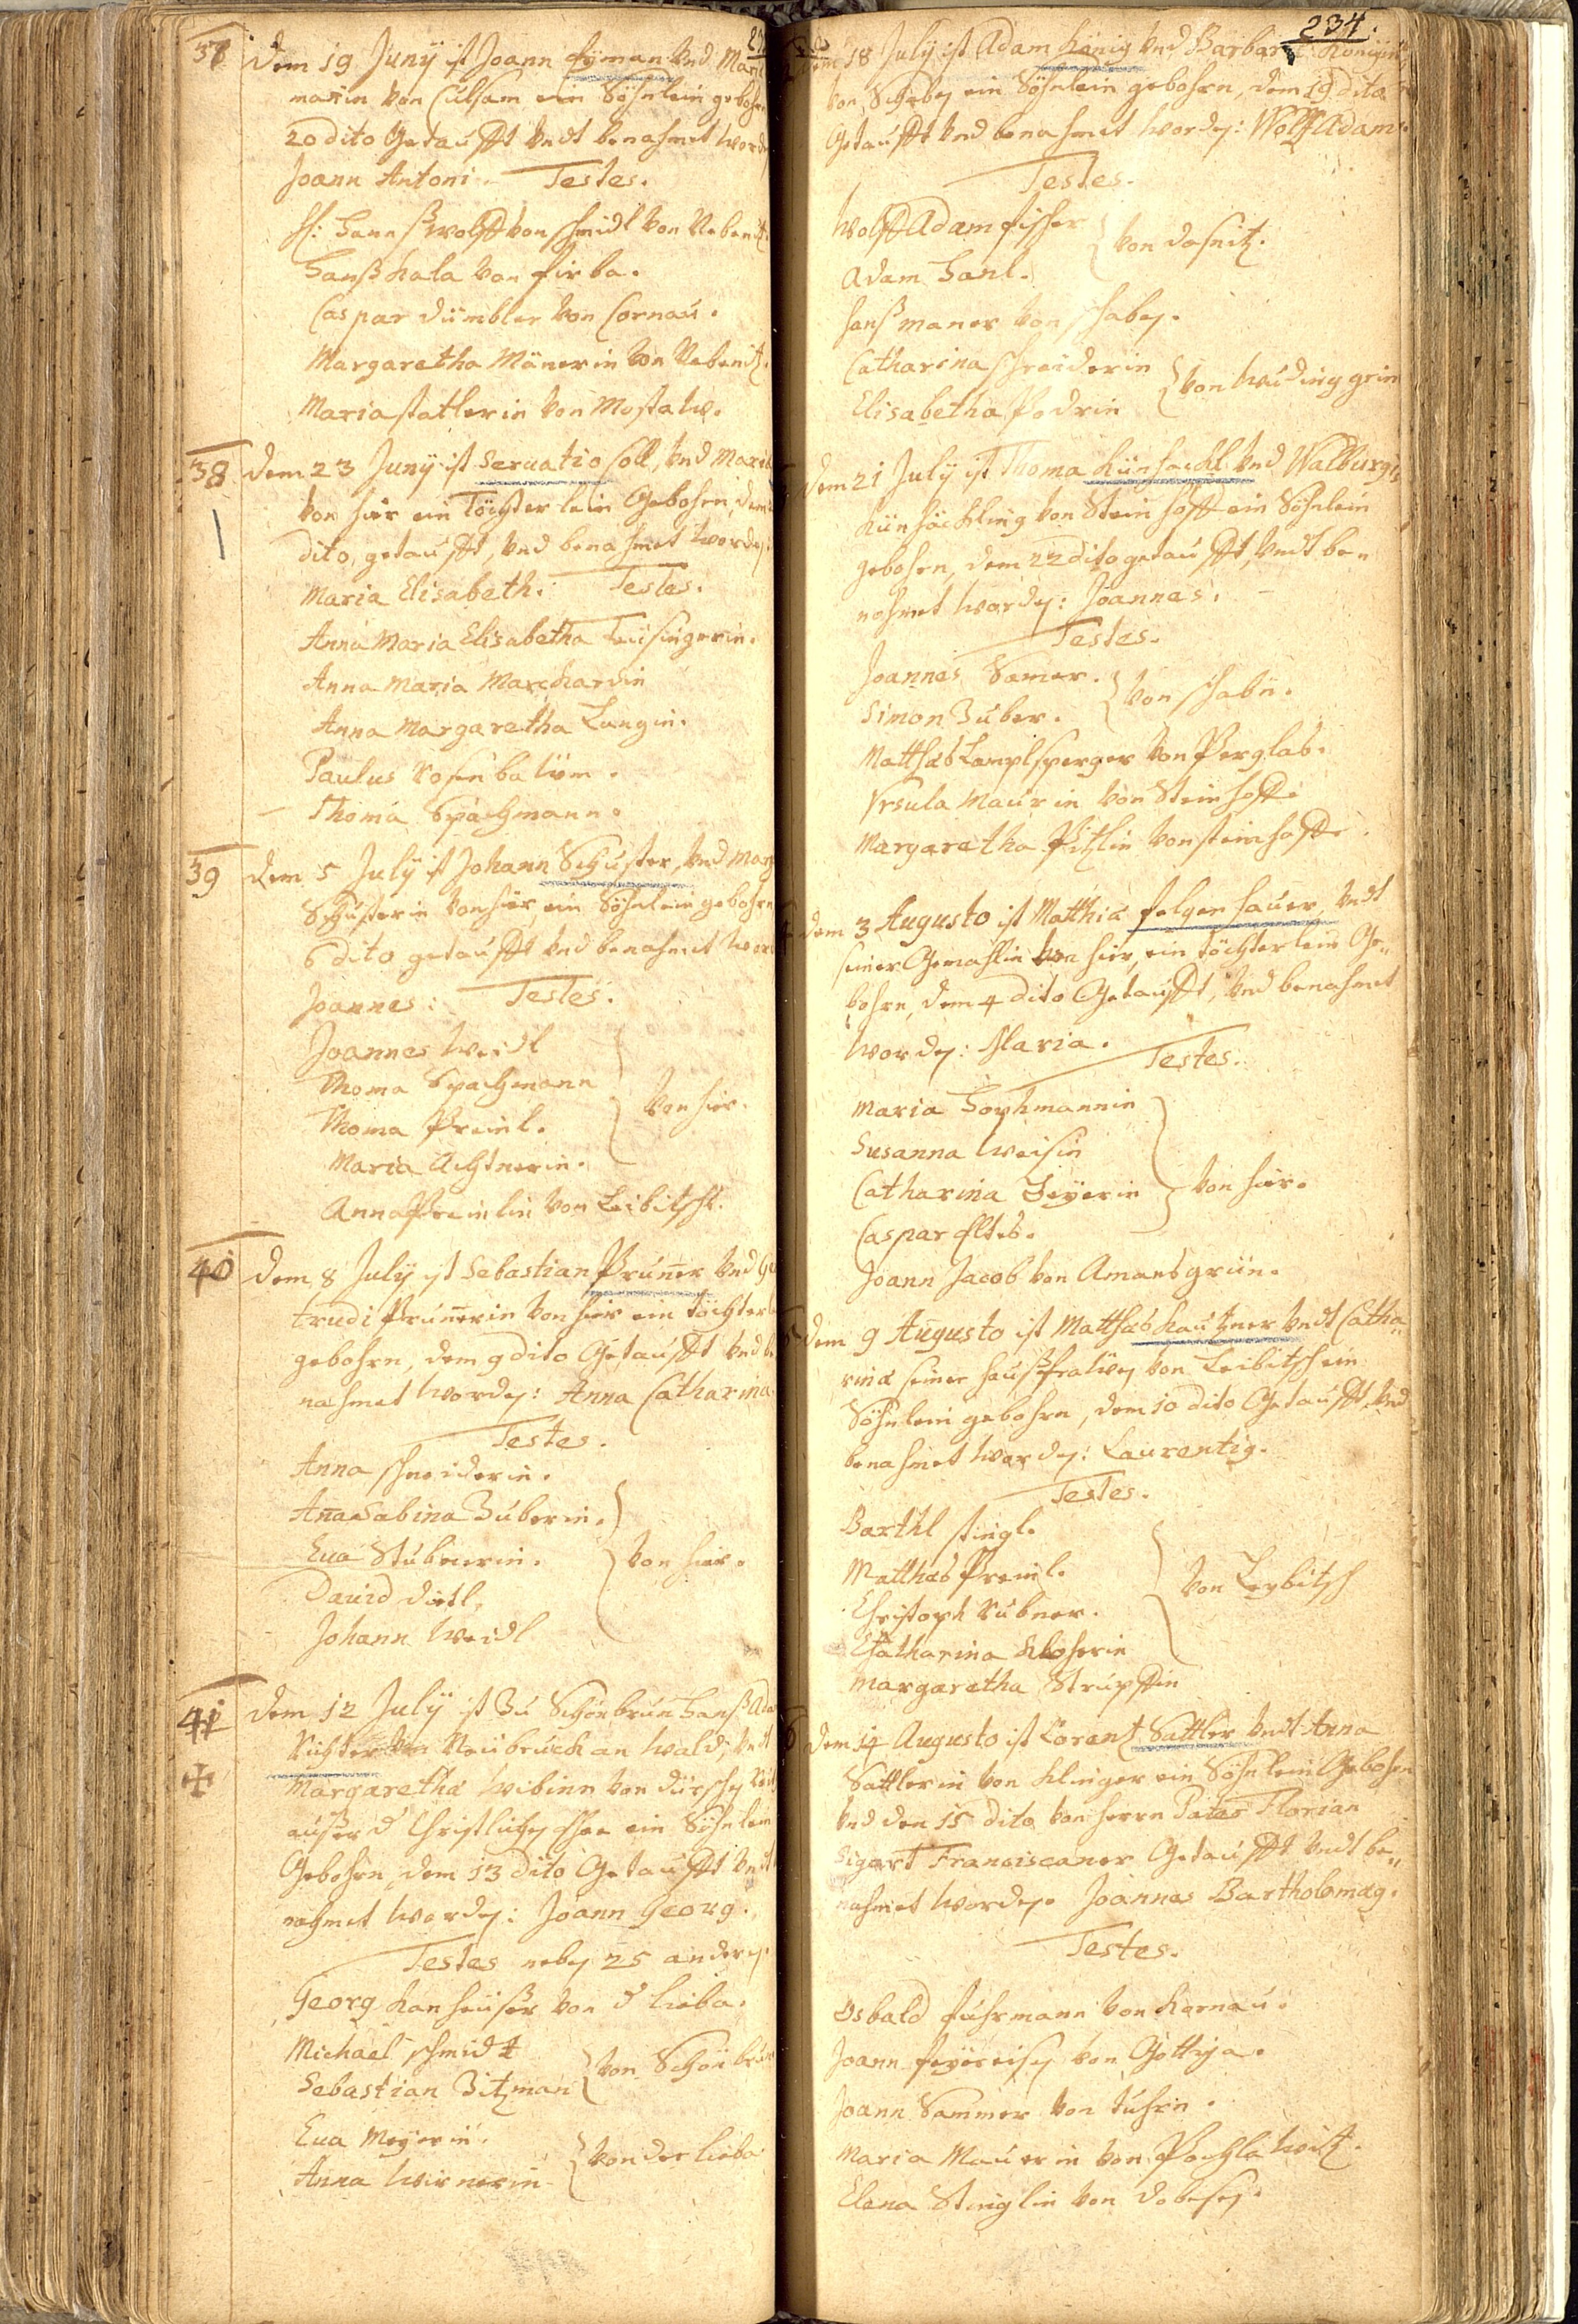 37 Dem 19 Junÿ ist Joann Eÿman vnd Mar
manin von Culsam ein Söhnlein gebohrn
20 dito Getaufft vndt benahmet word
Joann Antoni. Testes.
H: Hannß Wolff von Schmidl von Nebanitz.
Hanß Kala von Firba.
Caspar Dümbler von Cornau.
Margaretha Mänerin von Nebanitz.
Maria Statlerin von Mostaw.
38 Dem 23 Junÿ ist Seruatio Coll, vnd Maria
von hier ein Töchterlein Gebohrn, dem
dito, getaufft, vnd benahmet worden
Maria Elisabeth. Testes.
Anna Maria Elisabetha Teusingerin.
Anna Maria Marchardin
Anna Margaretha Langin.
Paulus Rosenbalüm.
Thoma Spachmann.
39 Dem 5 Julÿ ist Johann Schuster, vnd Marg
Schusterin von hier, ein Söhnlein gebohrn
6 dito getaufft vnd benahmet word
Joannes: Testes.
Joannes Weidl
Thoma Spachmann
Thoma Preinl. von hier.
Maria Achtnerin.
Anna Preinlin von Leibitsch.
40 Dem 8 Julÿ ist Sebastian Pruner vnd Ger
trudi Prunerin von hier ein töchterl
gebohrn, dem 9 dito Getaufft vnd be
nahmet worden: Anna Catharina.
Testes.
Anna Schneiderin.
Ana Sabina Zuberin.
Eua Stubnerin. von hier.
Dauid Dietl.
Johann Weidl
41 Dem 12 Julÿ ist Zu Schönbrun Hanß Ada
Richter von Neubruck an wald, vndt
Margaretha Weibinn von Dürschen
außer d Christlichen Ehe ein Söhnlein
Gebohrn, dem 13 dito Getaufft vndt
nahmet worden: Joann Georg.
Testes neben 25 andern.
Georg Kanheußer von d Lieba.
Michael Schmidt
Sebastian Zitzman von Schönbrun
Eua Meÿerin.
Anna Wirnerin von der Lieba
234.
Dem 18 Julÿ ist Adam König vnd Barbara Königin
von Schaben ein Söhnlein gebohrn, dem 19 dito
Getaufft vnd benahmet worden: Wolff Adam.
Testes.
Wolff Adam Fischer
Adam Hanl. von Dasnitz.
Hanß Maner von Schaben.
Catharina Schneiderin
Elisabetha Podrin von Wudinggrün
Dem 21 Julÿ ist Thoma Künhackl vnd Walburgis
Künhäckling von Steinhoff ein Söhnlein
gebohrn, dem 22 dito getaufft, vndt be„
nahmet worden: Joannes.
Testes.
Joannes Samer.
Simon Zuber. von Schabn.
Matthæs Lamplsperger von Perglas.
Vrsula Maurin von Steinhoff.
Margaretha Pitzlin von Steinhoff.
Dem 3 Augusto ist Matthia Felgenhauer, vndt
seiner Gemahlin von hier, ein töchterlein Ge„
bohrn, dem 4 dito Getaufft, vnd benahmet
worden: Maria.
Testes.
Maria Hoyhmannin
Susanna Weisin
Catharina Zeÿerin von hier.
Caspar Eltes.
Joann Jacob von Amansgrün.
Dem 9 Augusto ist Matthæs Hautner vndt Catha„
rina seiner haußfrawen von Leibitsch ein
Söhnlein gebohrn, dem 10 dito Getaufft, vnd
benahmet worden: Laurentig.
Testes.
Barthl Stingl.
Matthæs Preinl.
Christoph Rubner. von Leybitsch
Catharina Kloserin
Margaretha Strupffin
Dem 14 Augusto ist Lorantz Sattler vndt Anna
Sattlerin von Klinger ein Söhnlein Gebohrn
vnd den 15 dito von Herrn Pater Florian
Sigert Franciscaner Getaufft vndt be„
nahmet worden. Joannes Bartholomæg.
Testes.
Osbald Fuhrmann von Kornau.
Joann Feÿereisen von Göttiga.
Joann Sammer von Tuhrn.
Maria Mauerin von Pochlawitz.
Elena Stinglin von Dobesch.